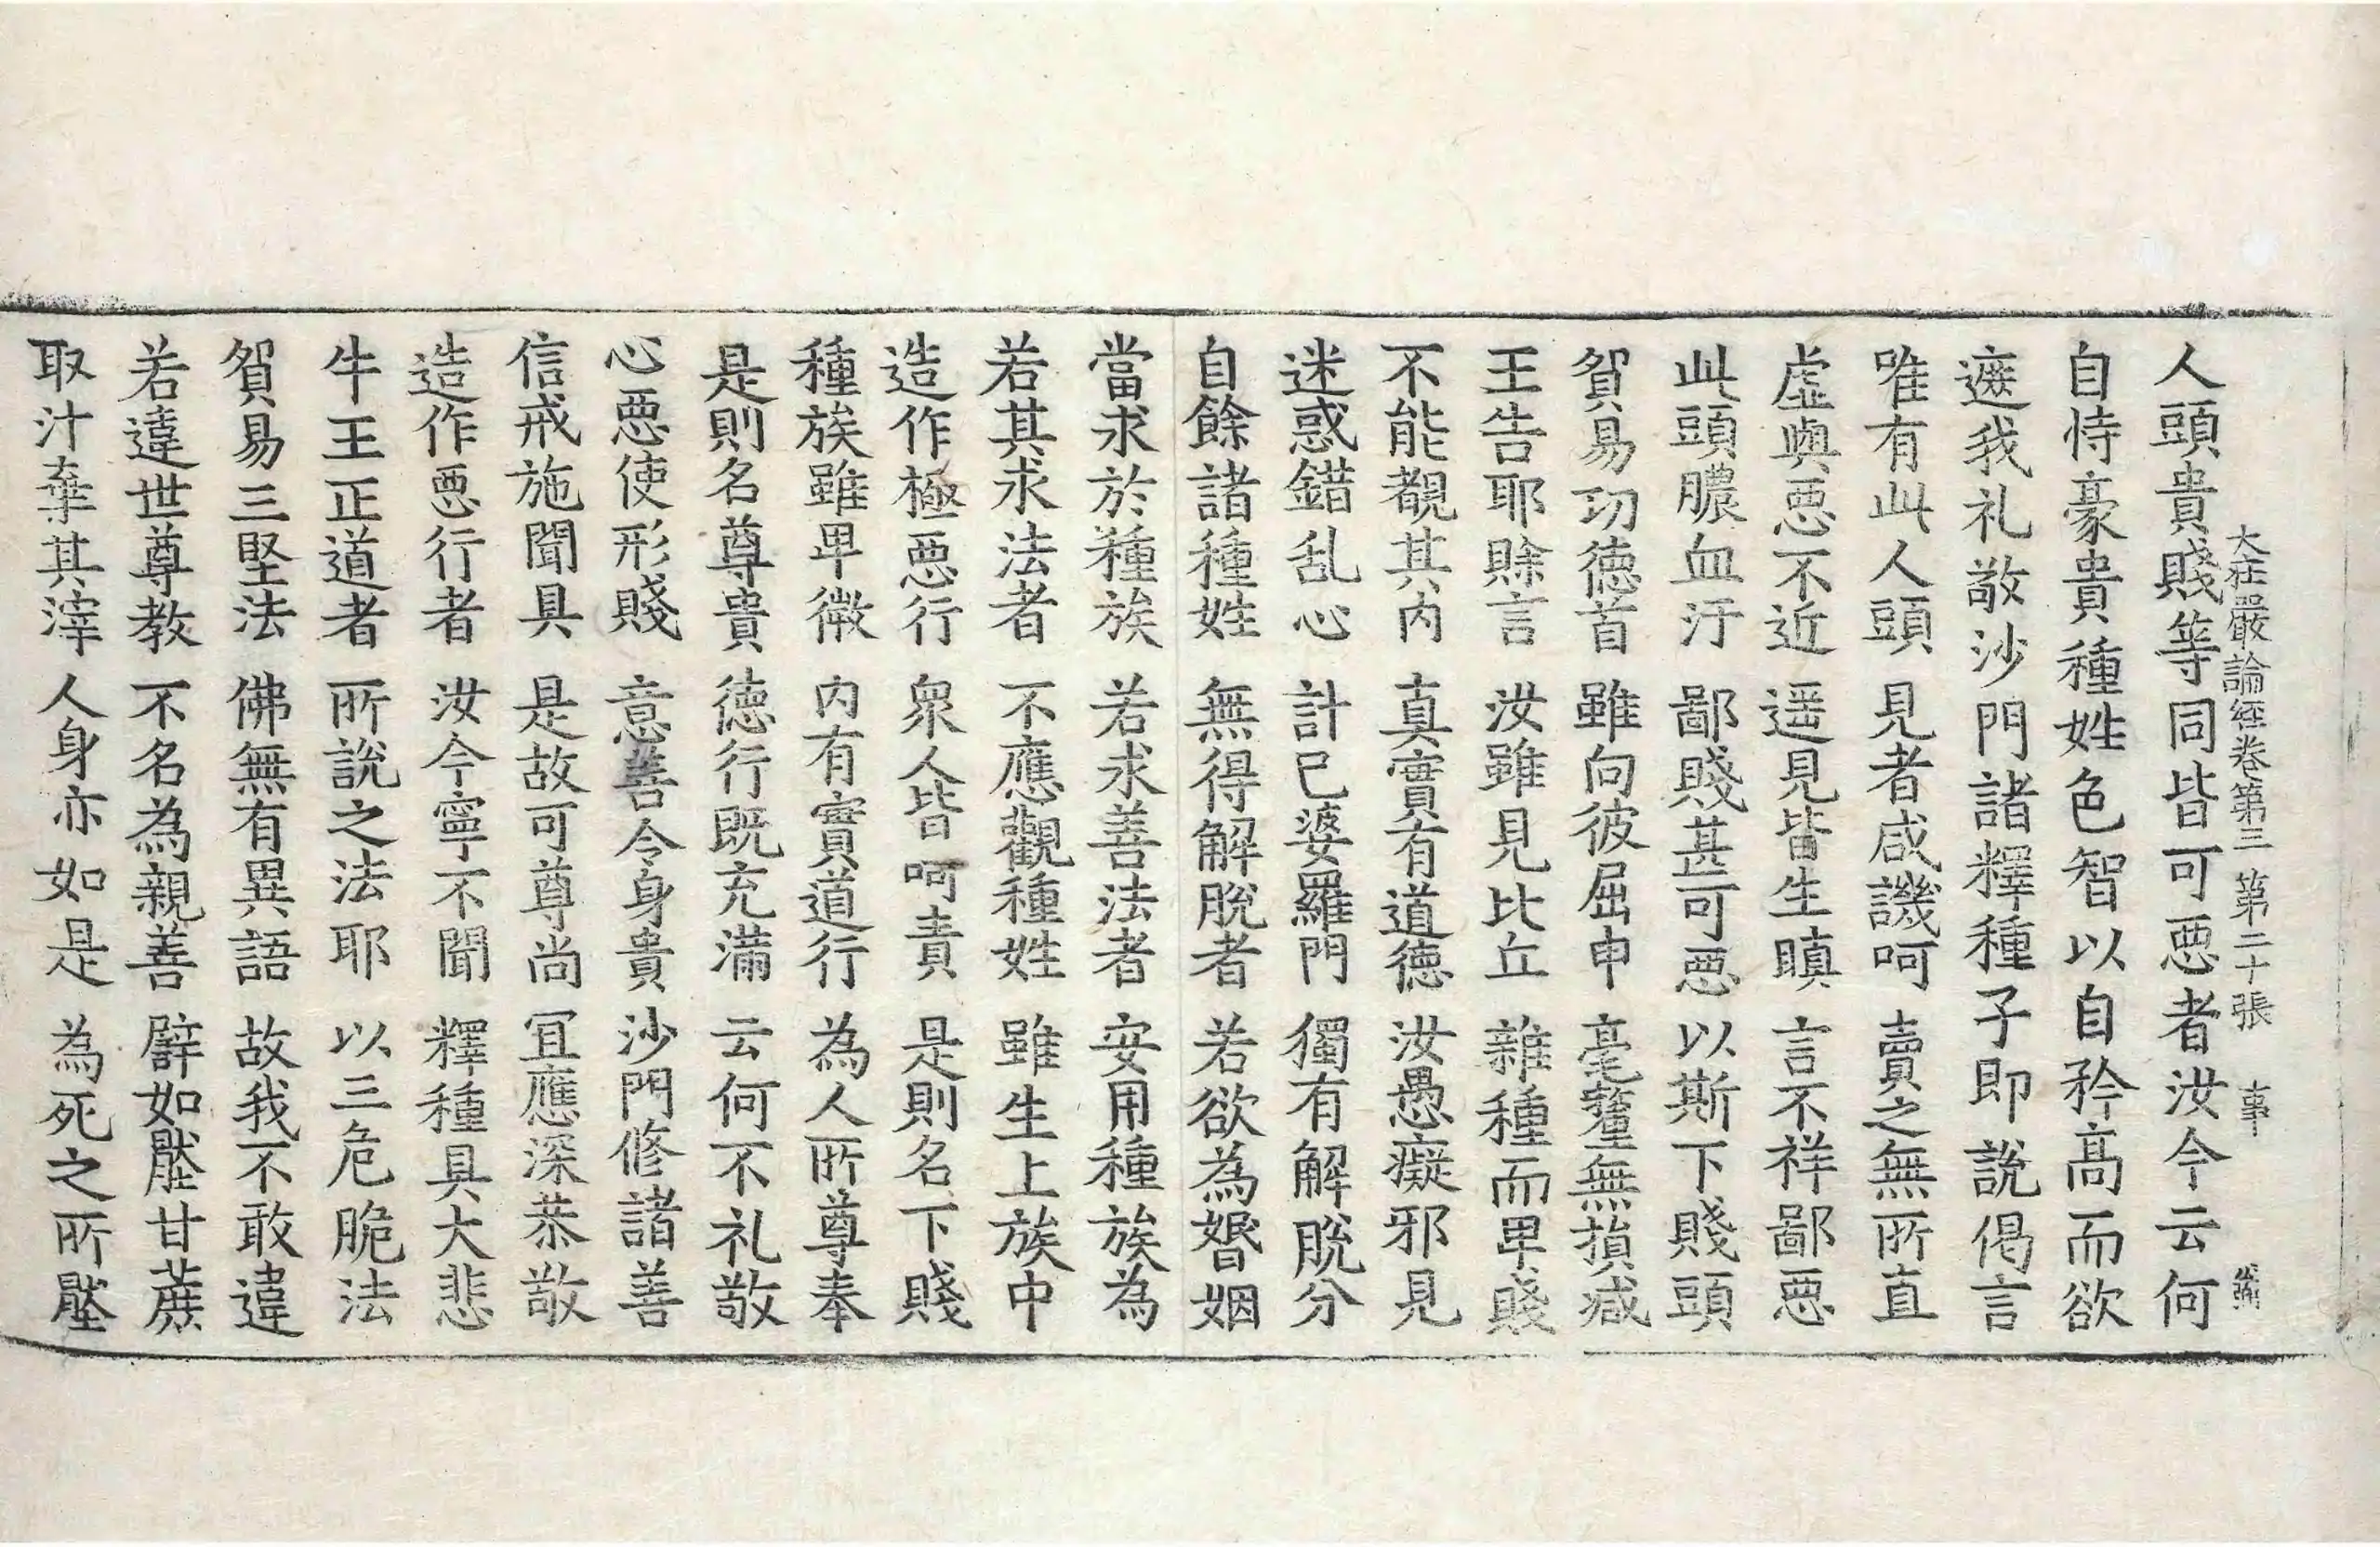 大莊嚴論經卷第三 第二十張 事
人頭貴賤等同皆可惡者汝今云何
自恃豪貴種姓色智以自矜高而欲
遮我礼敬沙門諸釋種子即說偈言
唯有此人頭 見者咸譏呵 賣之無所直
虛與惡不近 遥見皆生瞋 言不祥鄙惡
此頭膿血汙 鄙賤甚可惡 以斯下賤頭
貿易功德首 雖向彼屈申 毫釐無損減
王告耶賒言 汝雖見比丘 雜種而卑賤
不能覩其內 真實有道德 汝愚癡邪見
迷惑錯乱心 計己婆羅門 獨有解脫分
自餘諸種姓 無得解脫者 若欲為婚姻
當求於種族 若求善法者 安用種族為
若其求法者 不應觀種姓 雖生上族中
造作極惡行 衆人皆呵責 是則名下賤
種族雖卑微 內有實道行 為人所尊奉
是則名尊貴 德行既充滿 云何不礼敬
心惡使形賤 意善令身貴 沙門修諸善
信戒施聞具 是故可尊尚 冝應深恭敬
造作惡行者 汝今寧不聞 釋種具大悲
牛王正道者 所說之法耶 以三危脆法
貿易三堅法 佛無有異語 故我不敢違
若違世尊教 不名為親善 辟如壓甘蔗
取汁棄其滓 人身亦如是 為死之所壓